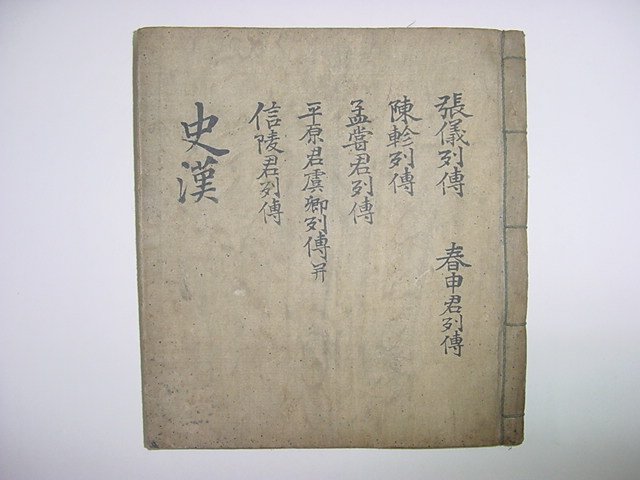 張儀列傳 春申君列傳
陳軫列傳
孟嘗君列傳
平原君虞卿列傳并
信陵君列傳
史漢